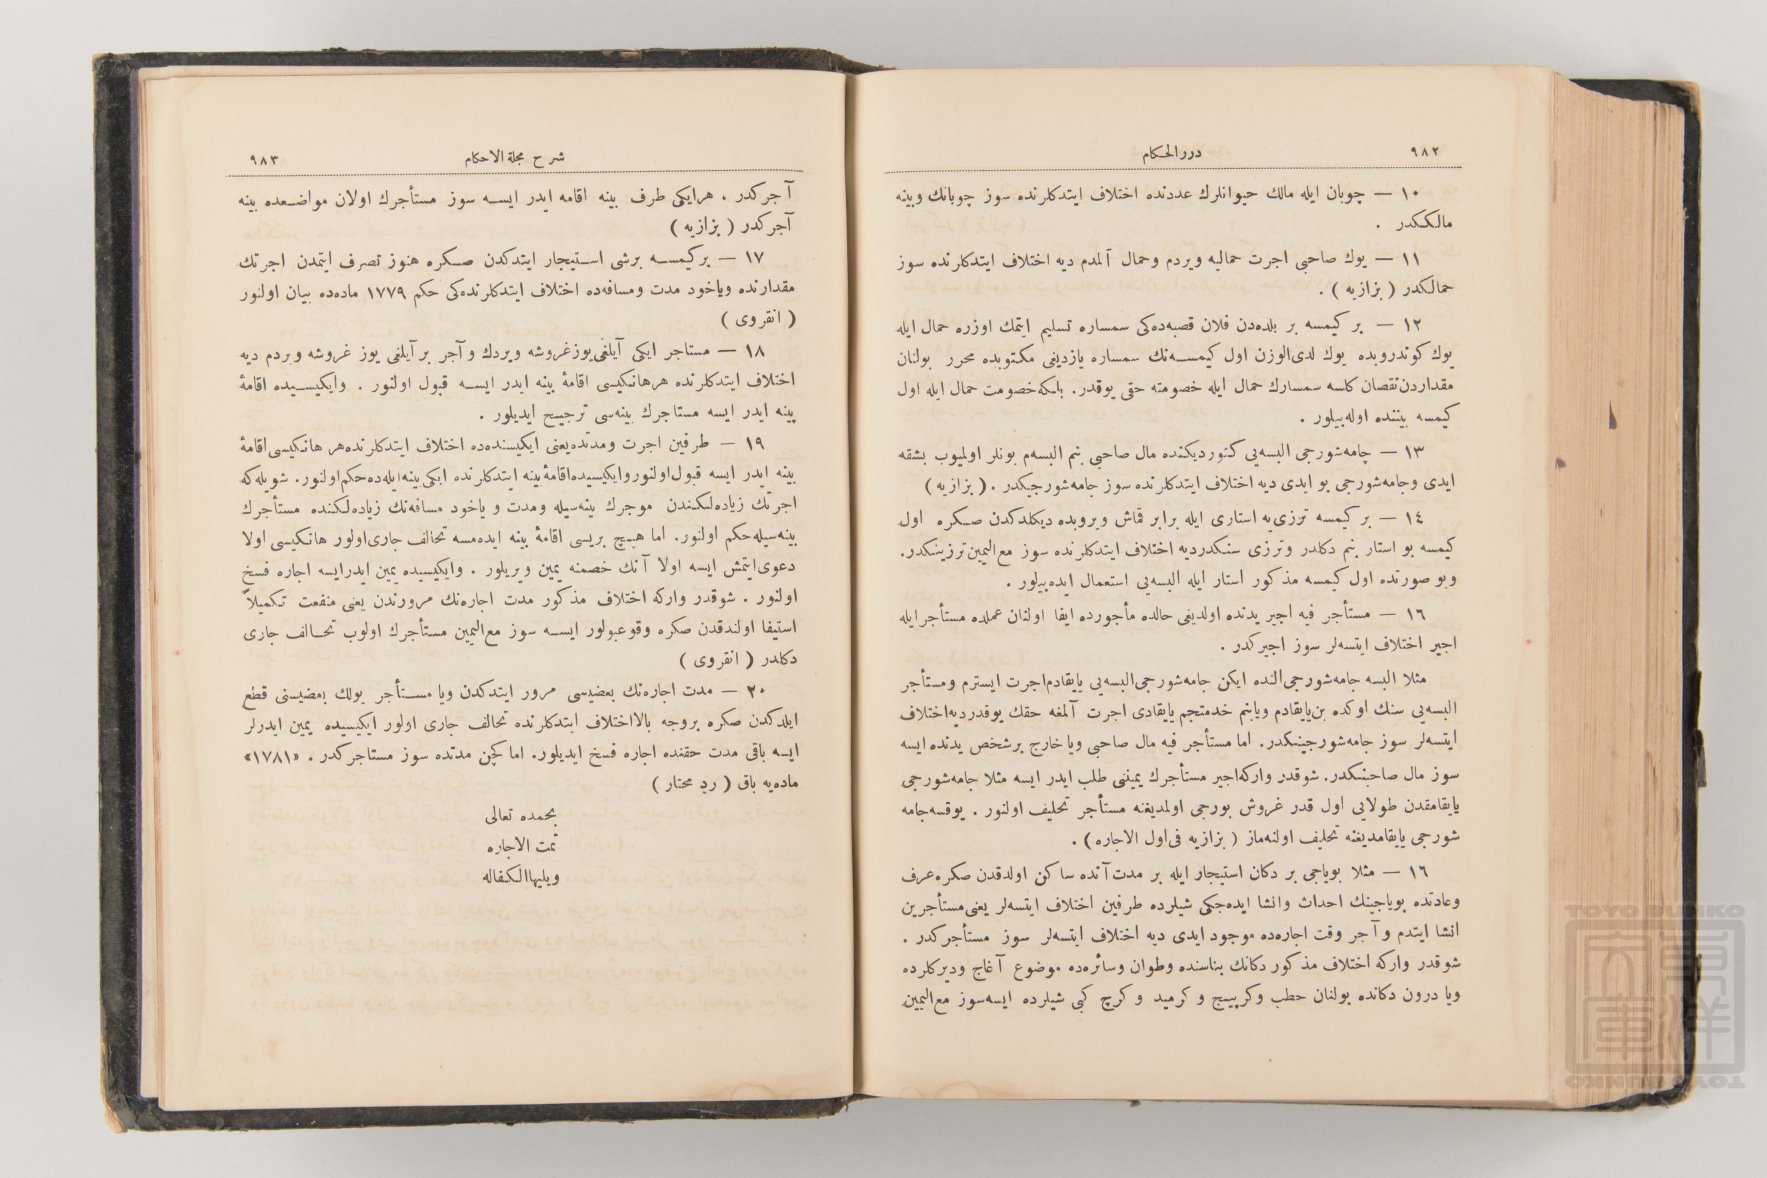 ٩٨٢
دررالحكام
١٠ — چوبان ايله مالك حيوانلرك عددنده اختلاف ايتدكلرنده سوز چوبانك وبينه
مالككدر .
١١ — يوك صاحبى اجرت حماليه ويردم وحمال آلمدم ديه اختلاف ايتدكلرنده سوز
حمالكدر ( بزازيه ) .
١٢ — بر كيمسه بر بلده‌دن فلان قصبه‌ده‌كى سمساره تسليم ايتمك اوزره حمال ايله
يوك كوندروبده يوك لدى‌الوزن اول كيمسه‌نك سمساره يازديغى مكتوبده محرر بولنان
مقداردن نقصان كلسه سمسارك حمال ايله خصومته حقى يوقدر. بلكه خصومت حمال ايله اول
كيمسه بيننده اوله‌بيلور .
١٣ — چامه‌شورجى البسه‌يى كتورديكنده مال صاحبى بنم البسه‌م بونلر اولميوب بشقه
ايدى وجامه‌شورجى بو ايدى ديه اختلاف ايتدكلرنده سوز جامه‌شورجيكدر . ( بزازيه )
١٤ — بر كيمسه ترزى‌يه استارى ايله برابر قماش ويروبده ديكلدكدن صكره اول
كيمسه بو استار بنم دكلدر وترزى سنكدرديه اختلاف ايتدكلرنده سوز مع‌اليمين ترزينكدر.
وبو صورتده اول كيمسه مذكور استار ايله البسه‌يى استعمال ايده‌بيلور .
١٦ — مستأجر فيه اجير يدنده اولديغى حالده مأجورده ايفا اولنان عملده مستأجر ايله
اجير اختلاف ايتسه‌لر سوز اجيركدر .
مثلا البسه جامه‌شورجى‌النده ايكن جامه‌شورجى‌البسه‌يى يايقادم‌اجرت ايسترم ومستأجر
البسه‌يى سنك اوكده بن‌يايقادم ويابنم خدمتجم يايقادى اجرت آلمغه حقك يوقدرديه‌اختلاف
ايتسه‌لر سوز جامه‌شورجينكدر. اما مستأجر فيه مال صاحبى وياخارج برشخص يدنده ايسه
سوز مال صاحبنكدر. شوقدر واركه‌اجير مستأجرك يمينى طلب ايدر ايسه مثلا جامه‌شورجى
يايقامقدن طولايى اول قدر غروش بورجى اولمديغنه مستأجر تحليف اولنور . يوقسه‌جامه
شورجى يايقامديغنه تحليف اولنه‌ماز ( بزازيه فى‌اول الاجاره ) .
١٦ — مثلا بوياجى بر دكان استيجار ايله بر مدت آنده ساكن اولدقدن صكره عرف
وعادتده بوياجينك احداث وانشا ايده‌جكى شيلرده طرفين اختلاف ايتسه‌لر يعنى‌مستأجرين
انشا ايتدم و آجر وقت اجاره‌ده موجود ايدى ديه اختلاف ايتسه‌لر سوز مستأجركدر .
شوقدر واركه اختلاف مذكور دكانك بناسنده وطوان وسائره‌ده موضوع آغاج وديركلرده
ويا درون دكانده بولنان حطب وكرپيج و كرميد و كرچ كبى شيلرده ايسه‌سوز مع‌اليمين
شرح مجلة الاحكام
٩٨٣
آجركدر ، هرايكى طرف بينه اقامه ايدر ايسه سوز مستأجرك اولان مواضعده بينه
آجركدر ( بزازيه )
١٧ — بركيمسه برشى استيجار ايتدكدن صكره هنوز تصرف ايتمدن اجرتك
مقدارنده وياخود مدت ومسافه‌ده اختلاف ايتدكلرنده‌كى حكم ١٧٧٩ ماده‌ده بيان اولنور
( انقروى )
١٨ — مستاجر ايكى آيلغى‌يوزغروشه ويردك و آجر بر آيلغى يوز غروشه ويردم ديه
اختلاف ايتدكلرنده هرهانكيسى اقامهٔ بينه ايدر ايسه قبول اولنور . وايكيسيده اقامهٔ
بينه ايدر ايسه مستاجرك بينه‌سى ترجيح ايديلور .
١٩ — طرفين اجرت ومدتده‌يعنى ايكيسنده‌ده اختلاف ايتدكلرنده‌هر هانكيسى‌اقامهٔ
بينه ايدر ايسه قبول‌اولنور وايكيسيده‌اقامهٔ بينه ايتدكلرنده ايكى بينه‌ايله‌ده‌حكم‌اولنور. شويله‌كه
اجرتك زياده‌لكندن موجرك بينه‌سيله ومدت و ياخود مسافه‌نك زياده‌لكنده مستأجرك
بينه‌سيله حكم اولنور. اما هيچ بريسى اقامهٔ بينه ايده‌مسه تحالف جارى‌اولور هانكيسى اولا
دعوى‌ايتمش ايسه اولا آنك خصمنه يمين ويريلور . وايكيسيده يمين ايدرايسه اجاره فسخ
اولنور . شوقدر واركه اختلاف مذكور مدت اجاره‌نك مرورندن يعنى منفعت تكميلاً
استيفا اولندقدن صكره وقوعبولور ايسه سوز مع‌اليمين مستأجرك اولوب تحالف جارى
دكلدر ( انقروى )
٢٠ — مدت اجاره‌نك بعضيسى مرور ايتدكدن ويا مستأجر يولك بعضيسنى قطع
ايلدكدن صكره بروجه بالااختلاف ايتدكلرنده تحالف جارى اولور ايكيسيده يمين ايدرلر
ايسه باقى مدت حقنده اجاره فسخ ايديلور. اما كچن مدتده سوز مستاجركدر . «١٧٨١»
ماده‌يه باق ( رد محتار )
بحمده تعالى
تمت الاجاره
ويليهاالكفاله
TOYO BUNKO
東洋文庫
TOYO BUNKO